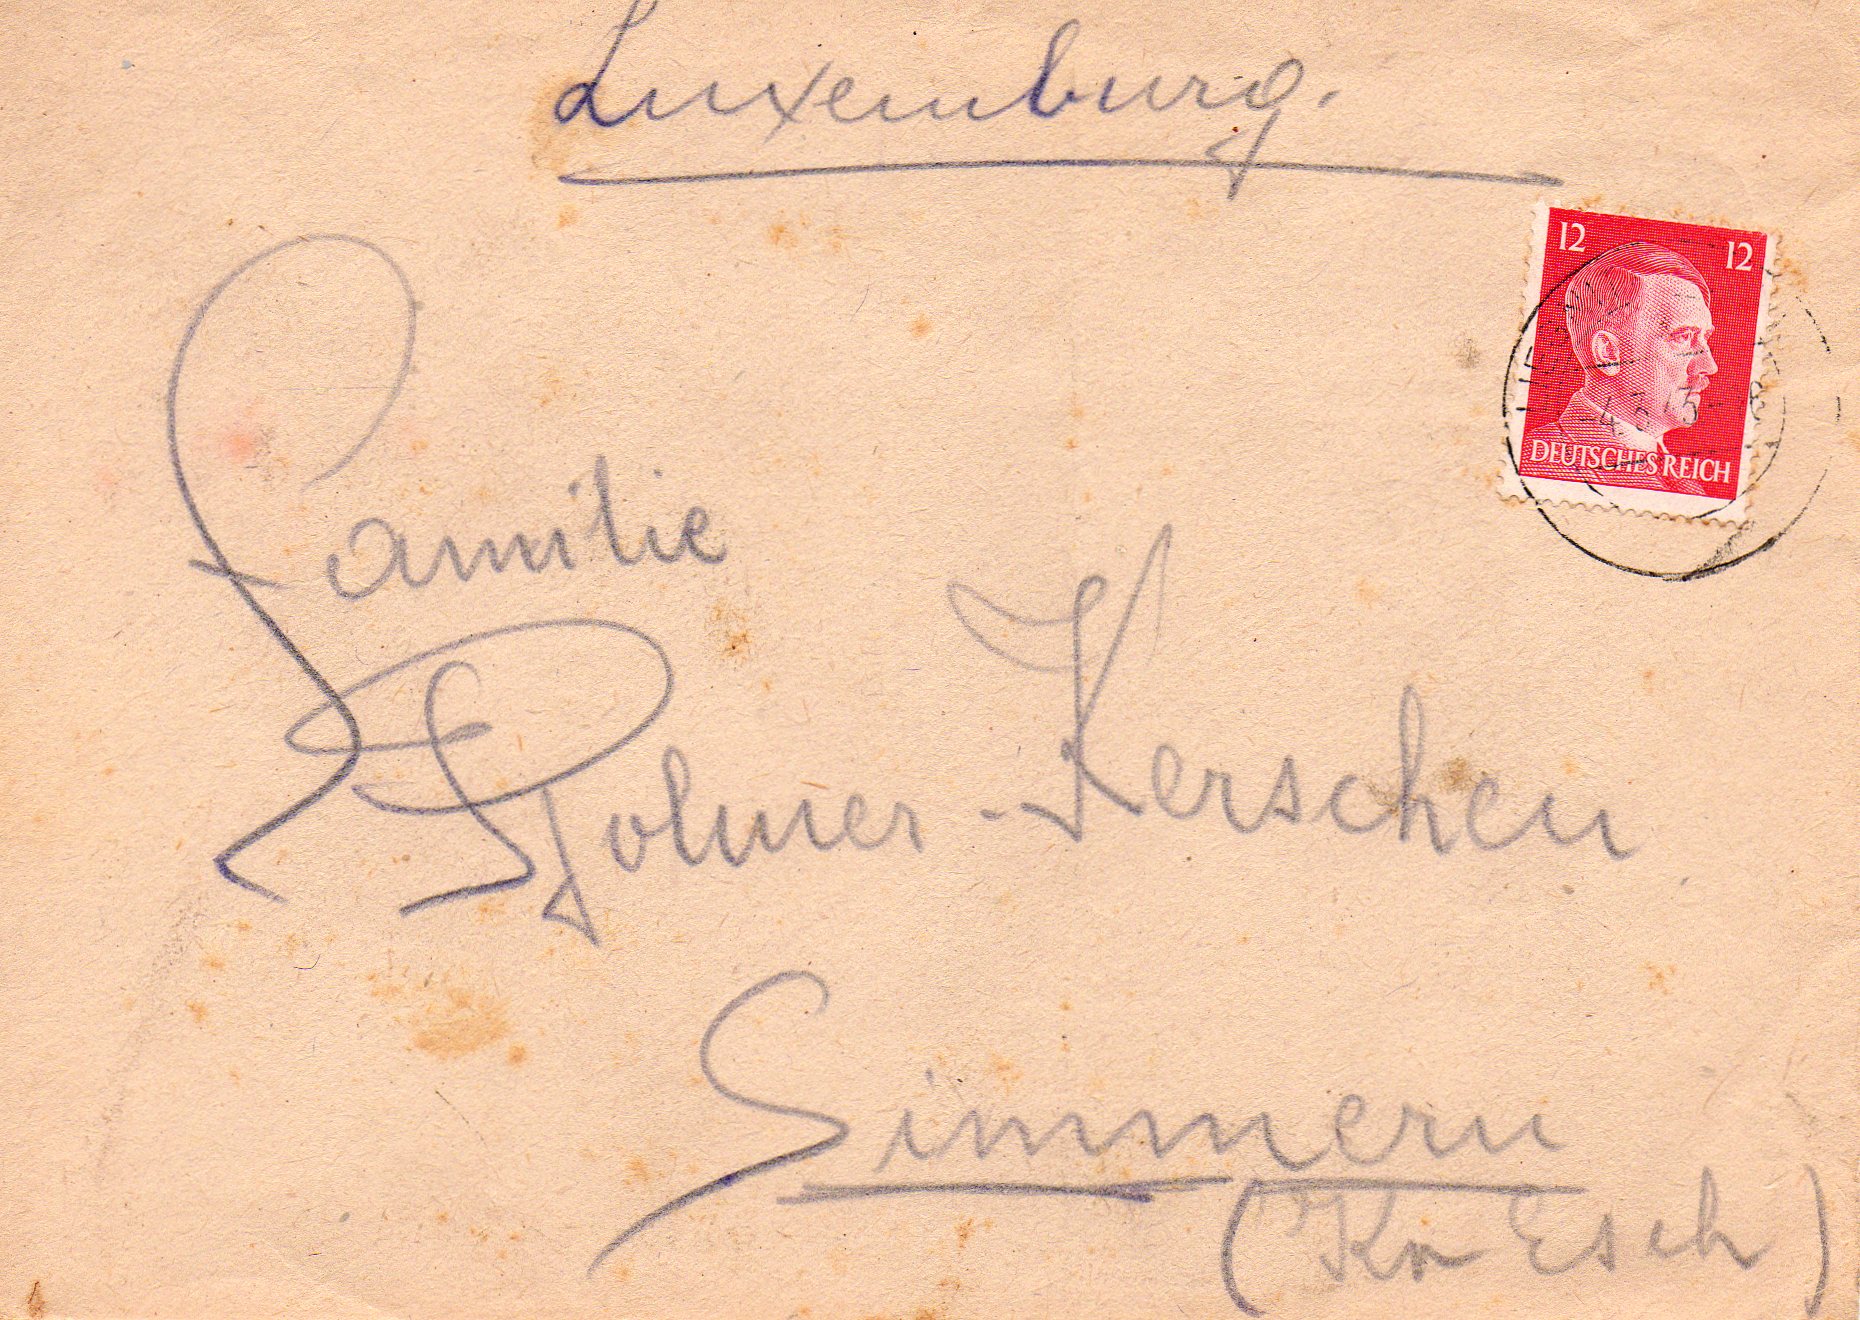 Luxemburg.
12 12
DEUTSCHES REICH
4.3.43
Familie
Folmer-Kerschen
Simmern
(Kr Esch)